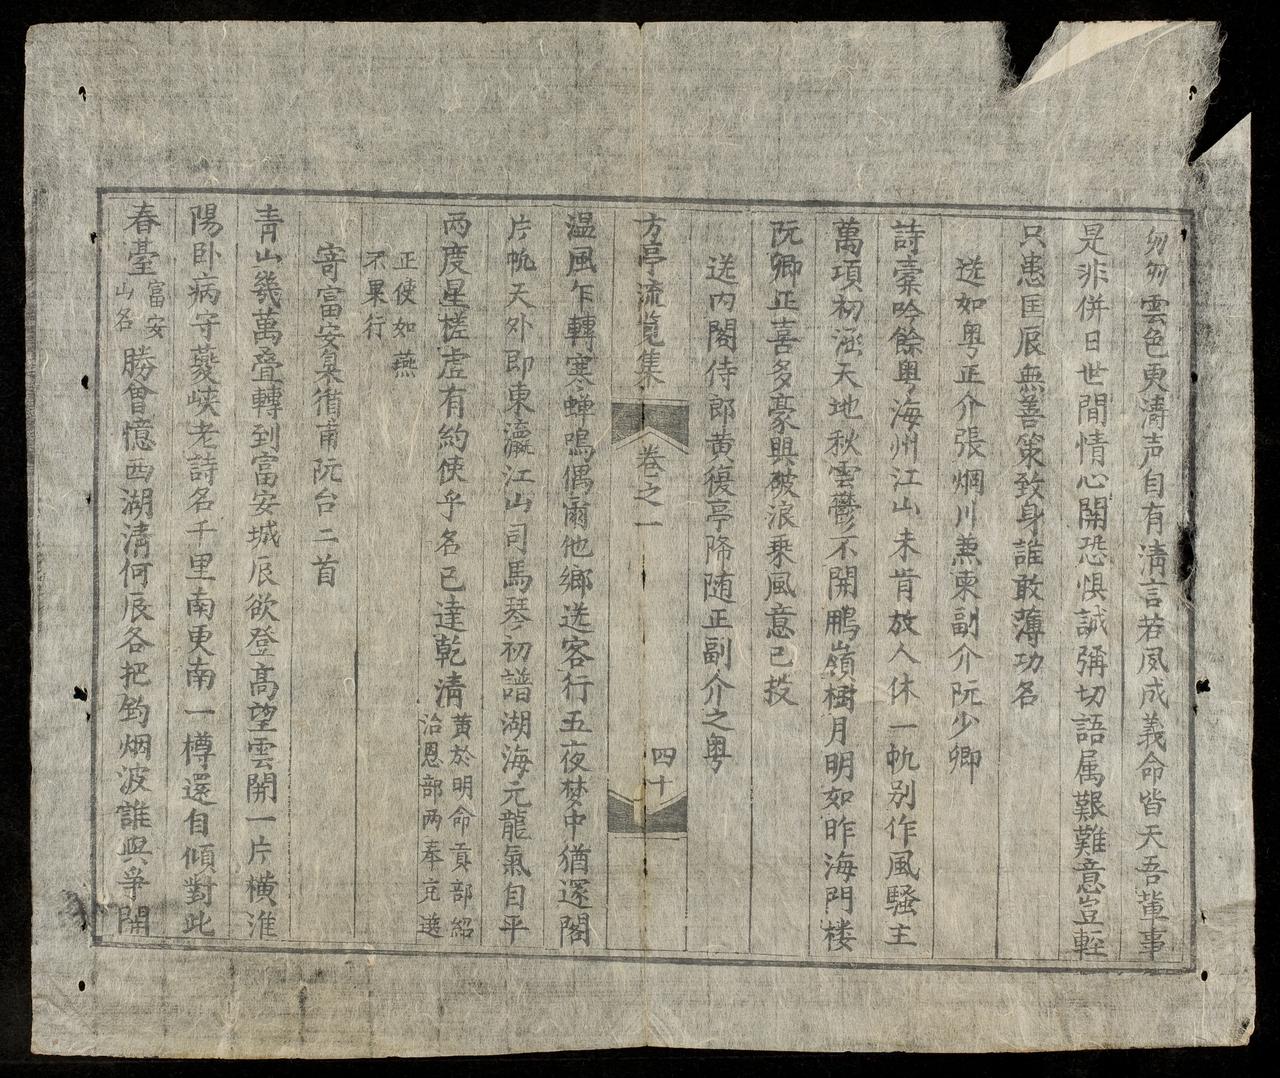 匆匆雲色更濤声自有清言若夙成義命皆天吾輩事
是非併日世間情心開恐惧誠弥切語属艱難意豈輕
只患匡辰無善策致身誰敢薄功名
送如粤正介張烱川兼柬副介阮少卿
詩稾吟餘粤海州江山未肯放人休一帆别作風騷主
萬項初涵天地秋雲鬱不開鵬嶺樹月明如昨海門楼
阮卿正喜多豪興破浪乘風意已投
送内閣侍郎黄復亭降随正副介之粤
方亭流覧集 卷之一 四十
温風乍轉寒蟬鳴偶爾他鄉送客行五夜梦中猶邃閣
片帆天外即東瀛江山司馬琴初譜湖海元龍氣自平
两度星槎虚有約使乎名已達乾清
黄於明命貢部紹
治恩部两奉充選
正使如燕
不果行
寄富安臬循甫阮台二首
青山幾萬叠轉到富安城辰欲登髙望雲開一片横淮
陽卧病守夔峽老詩名千里南更南一樽還自傾對此
春臺富安山名勝曾憶西湖清何辰各把釣烟波誰與爭開